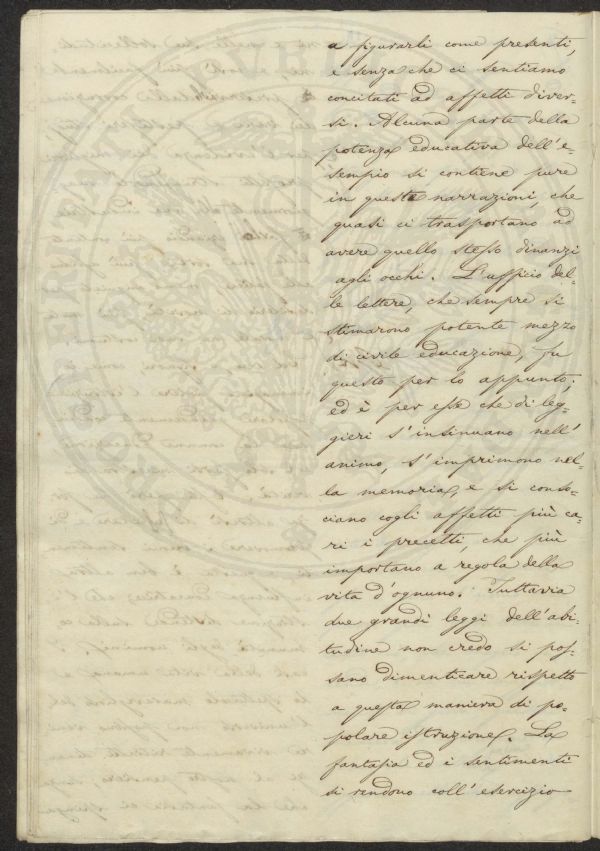 a figurarli come presenti,
e senza che ci sentiamo
concitati ad affetti diver-
si. Alcuna parte della
potenza educativa dell'e-
sempio si contiene pure
in queste narrazioni, che
quasi ci trasportano ad
avere quello stesso dinanzi
agli occhi. L'ufficio del-
le lettere, che sempre si
stimarono potente mezzo
di civile educazione, fu
questo per lo appunto;
ed è per esse che di leg-
gieri s'insinuano nell'
animo, s'imprimono nel-
la memoria, e si conso-
ciano cogli affetti più ca-
ri i precetti, che più
importano a regola della
vita d'ognuno. Tuttavia
due grandi leggi dell'abi-
tudine non credo si pos-
sano dimenticare rispetto
a questa maniera di po-
polare istruzione. La
fantasia ed i sentimenti
si rendono coll'esercizio